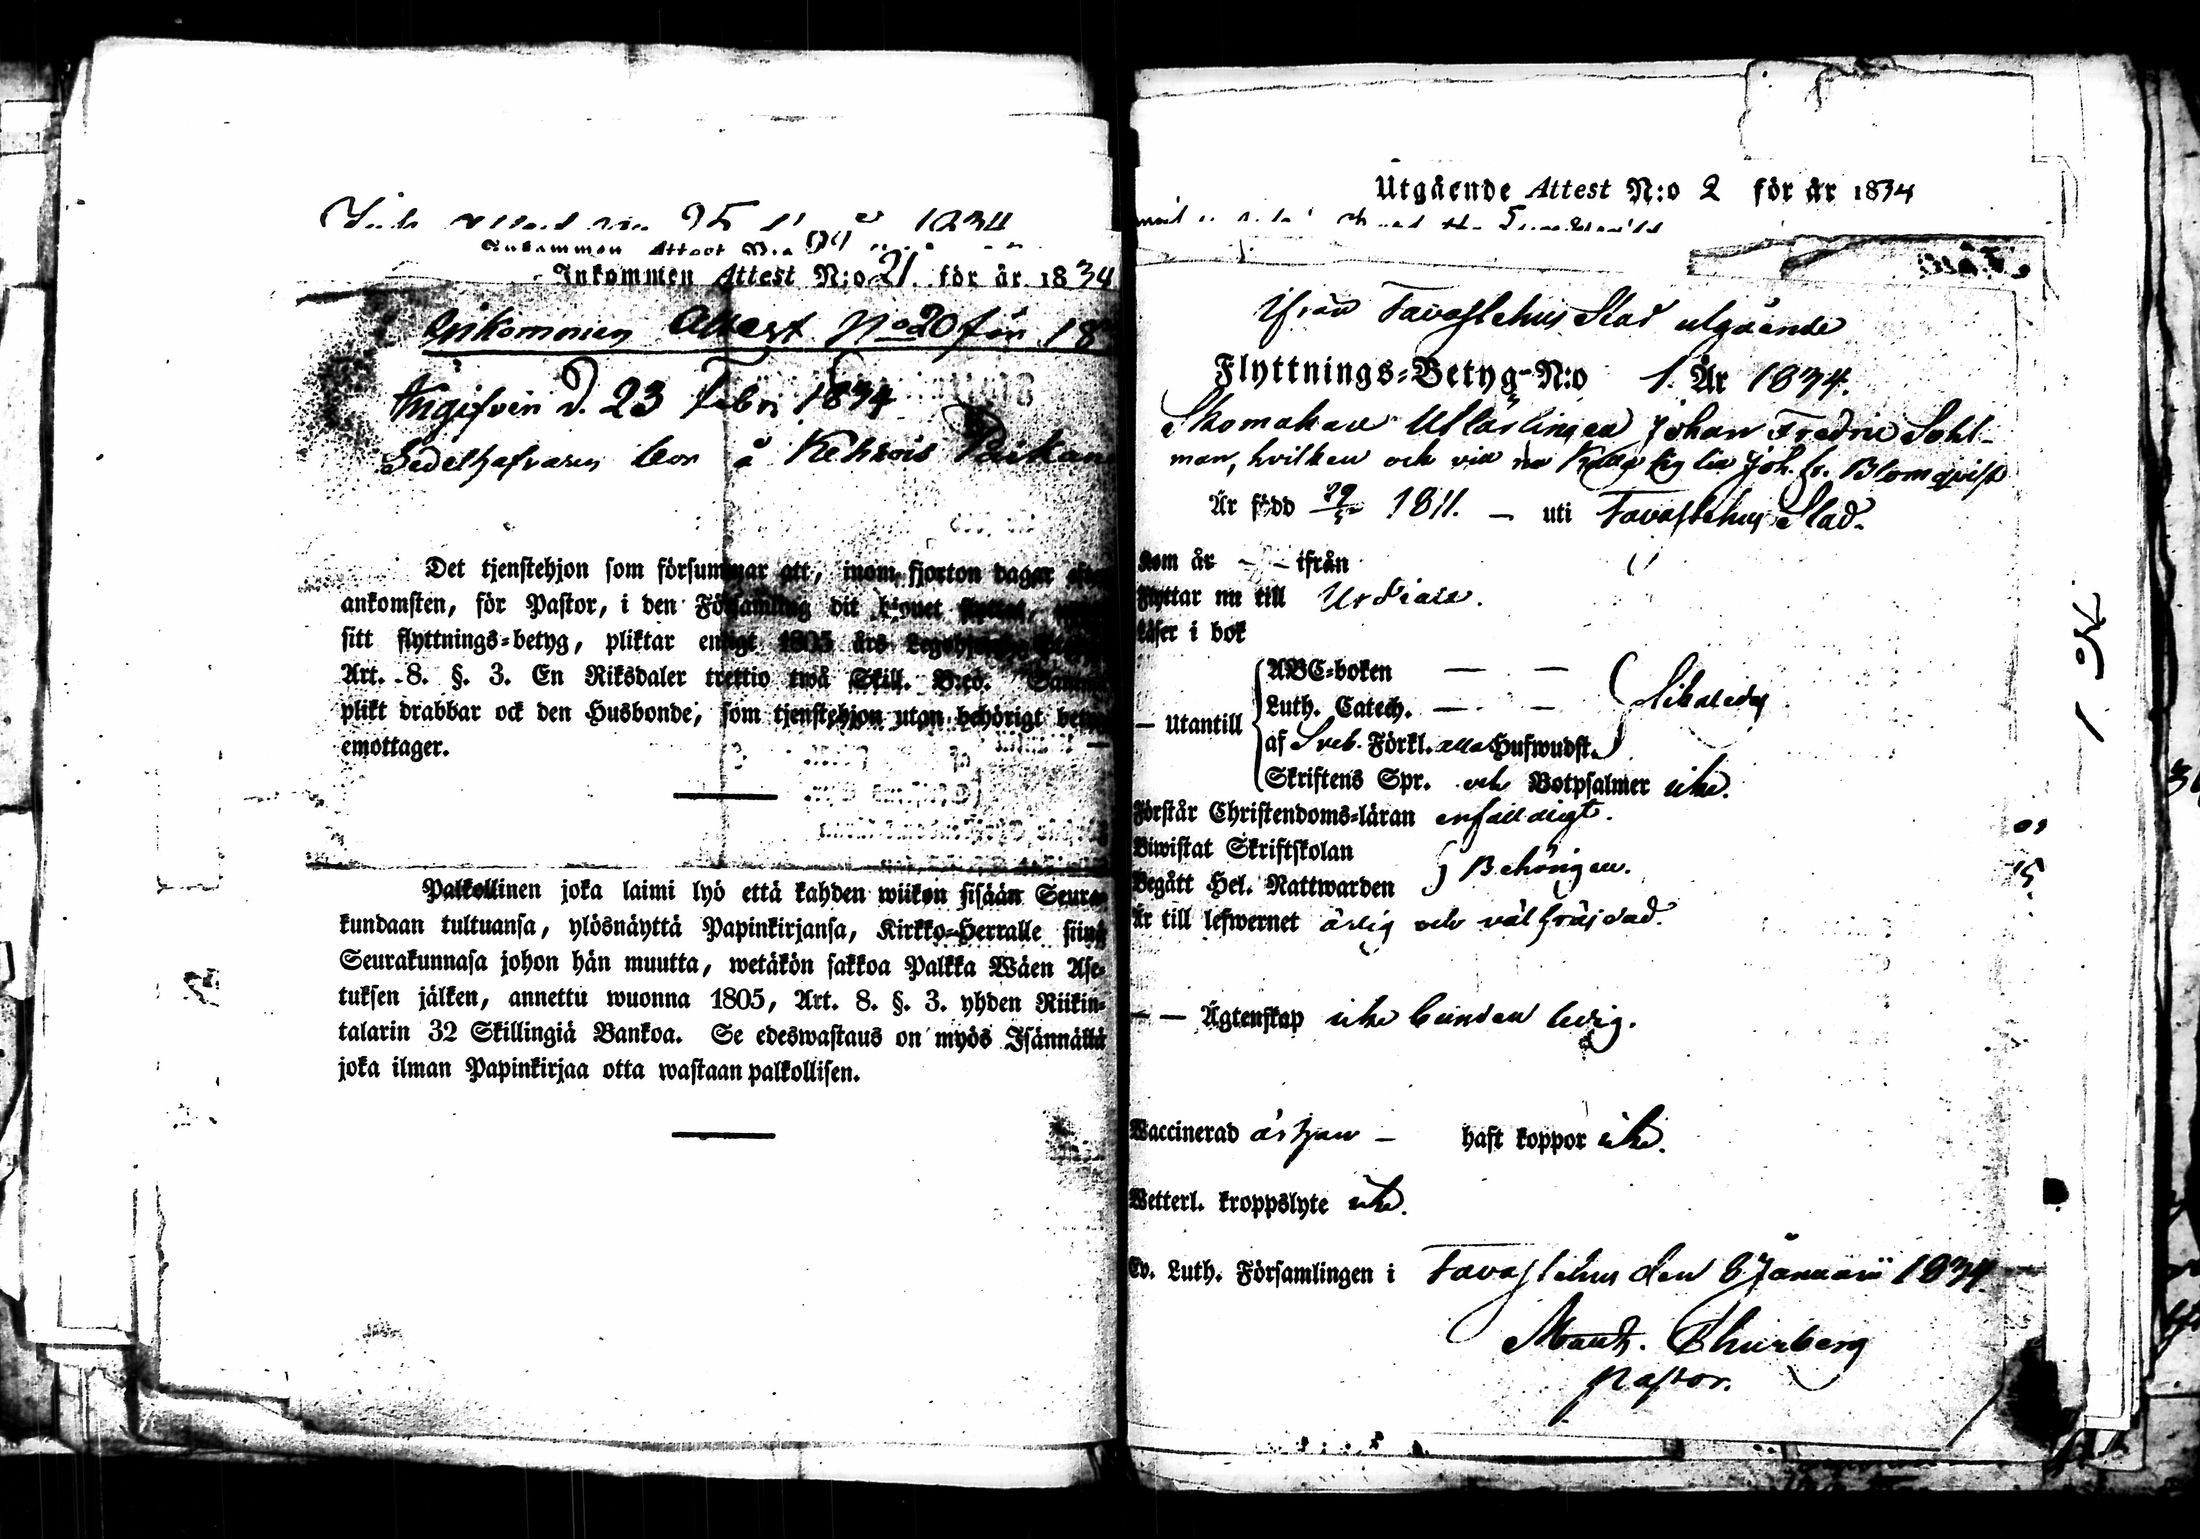 Inkommen Attest N:o 21. för år 1834
Inkommen Attest No 20 för 18
Ingifven d. 23 Febr 1834
Sedelhafvaren bor å Kehrois
Det tjenstehjon som försummar att, inom fjorton dagar efter
ankomsten, för Pastor, i den Församling dit hjonet
sitt flyttnings-betyg, pliktar enligt 1805 års
Art. 8. §. 3. En Riksdaler trettio twå Skill. B:co.
plikt drabbar ock den Husbonde, som tjenstehjon utan behörigt
emottager.
Palkollinen joka laimi lyö että kahden wiikon sisään Seura-
kundaan tultuansa, ylösnäyttä Papinkirjansa, Kirkko-Herralle siinä
Seurakunnasa johon hän muutta, wetäkön sakkoa Palkka Wäen Ase-
tuksen jälken, annettu wuonna 1805, Art. 8. §. 3. yhden Riikin-
talarin 32 Skillingiä Bankoa. Se edeswastaus on myös Isännällä
joka ilman Papinkirjaa otta wastaan palkollisen.
Utgående Attest N:o 2 för år 1834
Ifrån Tavastehus Stad utgående
Flyttnings-Betyg N:o 1. År 1834.
Skomakare Utlärlingen Johan Fredric Sohl-
man, hvilken och vill nu kalla sig för Joh. Fr. Blomqvist
Är född 1811. — uti Tavastehus Stad.
Kom år — — ifrån
Flyttar nu till Urdiala.
Läser i bok
— Utantill
ABC-boken — —
Luth. Catech. — —
af Sveb. Förkl. alla Hufwudst.
Skriftens Spr. och Botpsalmer icke.
Förstår Christendoms-läran enfaldigt.
Biwistat Skriftskolan
Begått Hel. Nattwarden } Behörigen.
Är till lefwernet ärlig och välfräjdad.
— — Ägtenskap icke bunden ledig.
Waccinerad är han — haft koppor icke.
Wetterl. kroppslyte icke.
Ev. Luth. Församlingen i Tavastehus den 8 Januarii 1834.
Thurberg
Pastor.